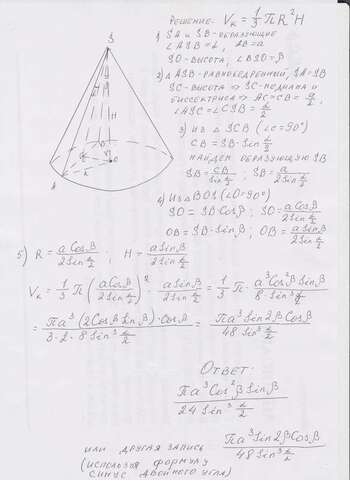 Решение: Vк = 1/3 πR²H
1) SA и SB - образующие
∠ASB = α, AB = a
SO - высота; ∠BSO = β
2) △ASB - равнобедренный, SA = SB
SC - высота ⇒ SC - медиана и
биссектриса ⇒ AC = CB = a/2
∠ASC = ∠CSB = α/2
3) Из △SCB (∠C = 90°)
CB = SB · Sin α/2
Найдем образующую SB
SB = CB / Sin α/2 ; SB = a / 2Sin α/2
4) Из △BOS (∠O = 90°)
SO = SB · Cosβ ; SO = aCosβ / 2Sin α/2
OB = SB · Sinβ ; OB = aSinβ / 2Sin α/2
S
H
A
B
C
O
5) R = aCosβ / 2Sin α/2 ; H = aSinβ / 2Sin α/2
Vк = 1/3 π (aCosβ / 2Sin α/2)² · aSinβ / 2Sin α/2 = 1/3 π · a³Cos²βSinβ / 8Sin³ α/2 =
= πa³(2CosβSinβ) · Cosβ / 3·2·8Sin³ α/2 = πa³Sin2βCosβ / 48Sin³ α/2
Ответ:
πa³Cos²βSinβ / 24Sin³ α/2
или другая запись πa³Sin2βCosβ / 48Sin³ α/2
(используя формулу
синус двойного угла)